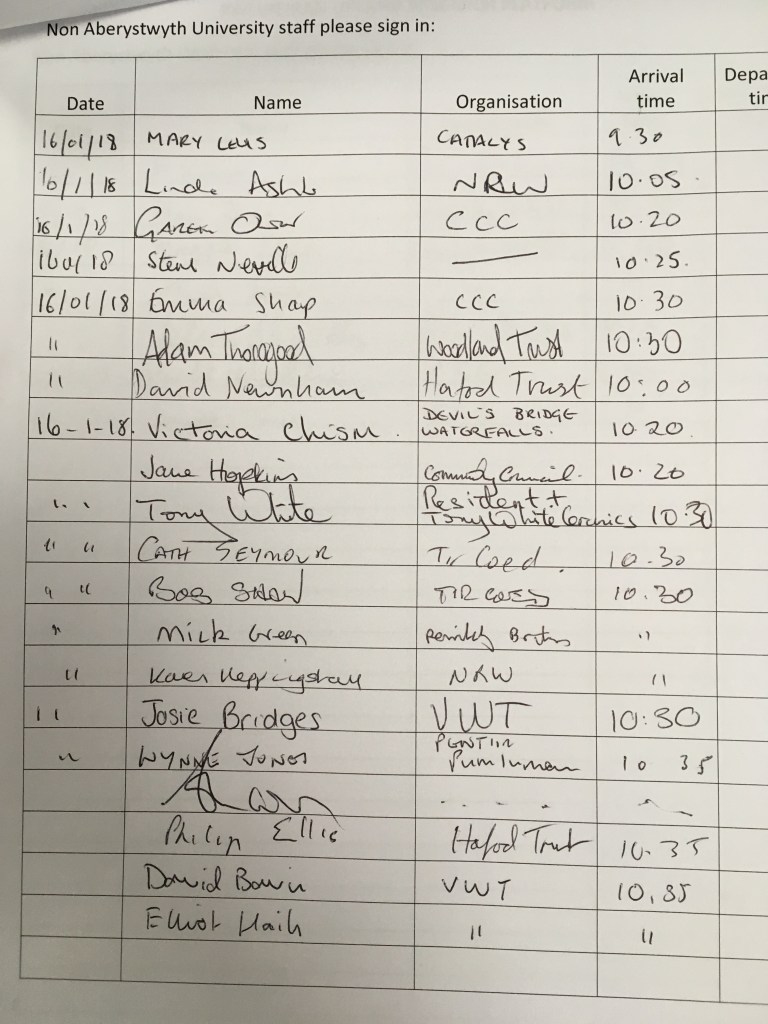 Non Aberystwyth University staff please sign in:
Date Name Organisation Arrival time Depa tim
16/01/18 MARY LEWIS CATALYS 9.30
16/1/18 Linda NRW 10.05
16/1/18 CCC 10.20
16/01/18 Steve Nevill — 10.25.
16/01/18 Emma Sharp CCC 10.30
" Adam Thorogood Woodland Trust 10:30
" David Newnham Hafod Trust 10:00
16-1-18. Victoria Chism. DEVIL'S BRIDGE WATERFALLS. 10.20
Jane Hopkins Community Council. 10.20
" Tony White Resident + Tony White Ceramics 10.30
" " CATH SEYMOUR Tir Coed. 10.30
" " BOB SHAW TIR COED 10.30
" Mick Green "
" NRW "
" Josie Bridges VWT 10:30
" WYNNE JONES Pumlumon 10 35
Philip Ellis Hafod Trust 10.35
David VWT 10.35
Elliot " "